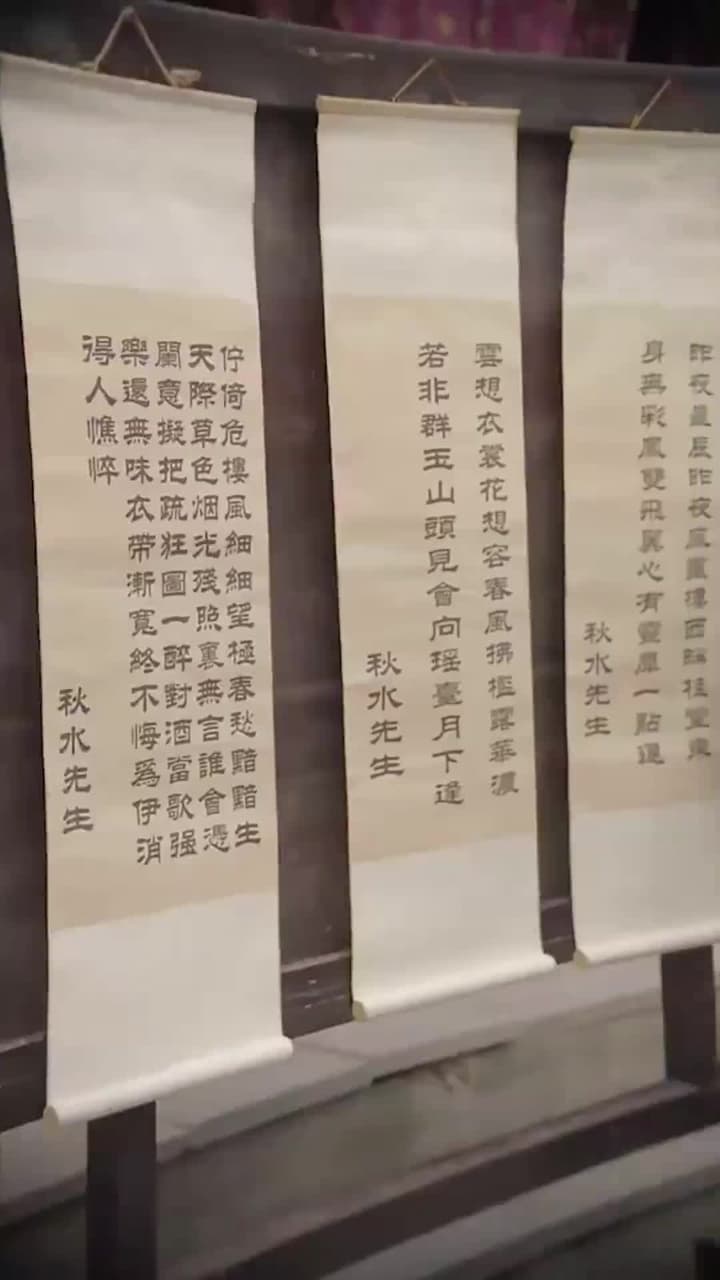 昨夜星辰昨夜風畫樓西畔桂堂東
身無彩鳳雙飛翼心有靈犀一點通
秋水先生
雲想衣裳花想容春風拂檻露華濃
若非群玉山頭見會向瑶臺月下逢
秋水先生
佇倚危樓風細細望極春愁黯黯生
天際草色烟光殘照裏無言誰會憑
闌意擬把疏狂圖一醉對酒當歌强
樂還無味衣帶漸寬終不悔爲伊消
得人憔悴
秋水先生